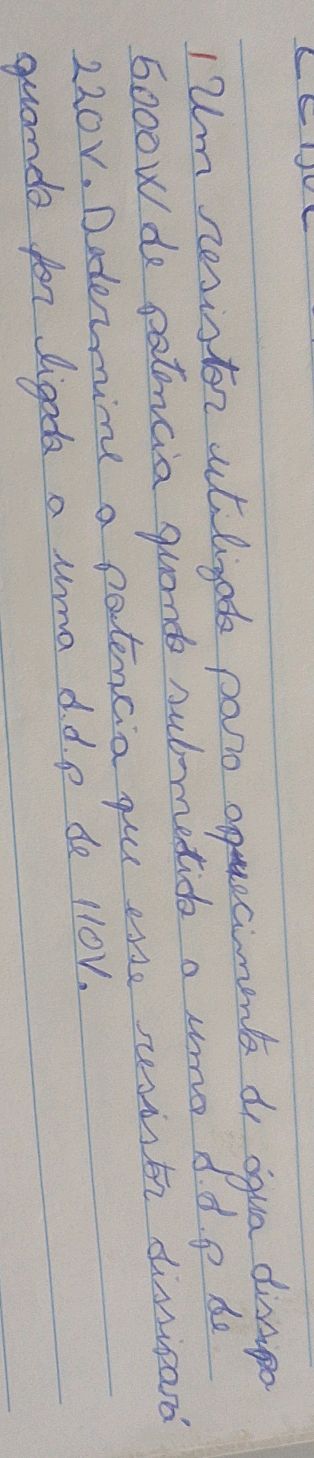 1 Um resistor utilizado para aquecimento de água dissipa
5000W de potência quando submetido a uma d.d.p de
220V. Determine a potência que esse resistor dissipará
quando for ligado a uma d.d.p de 110V.